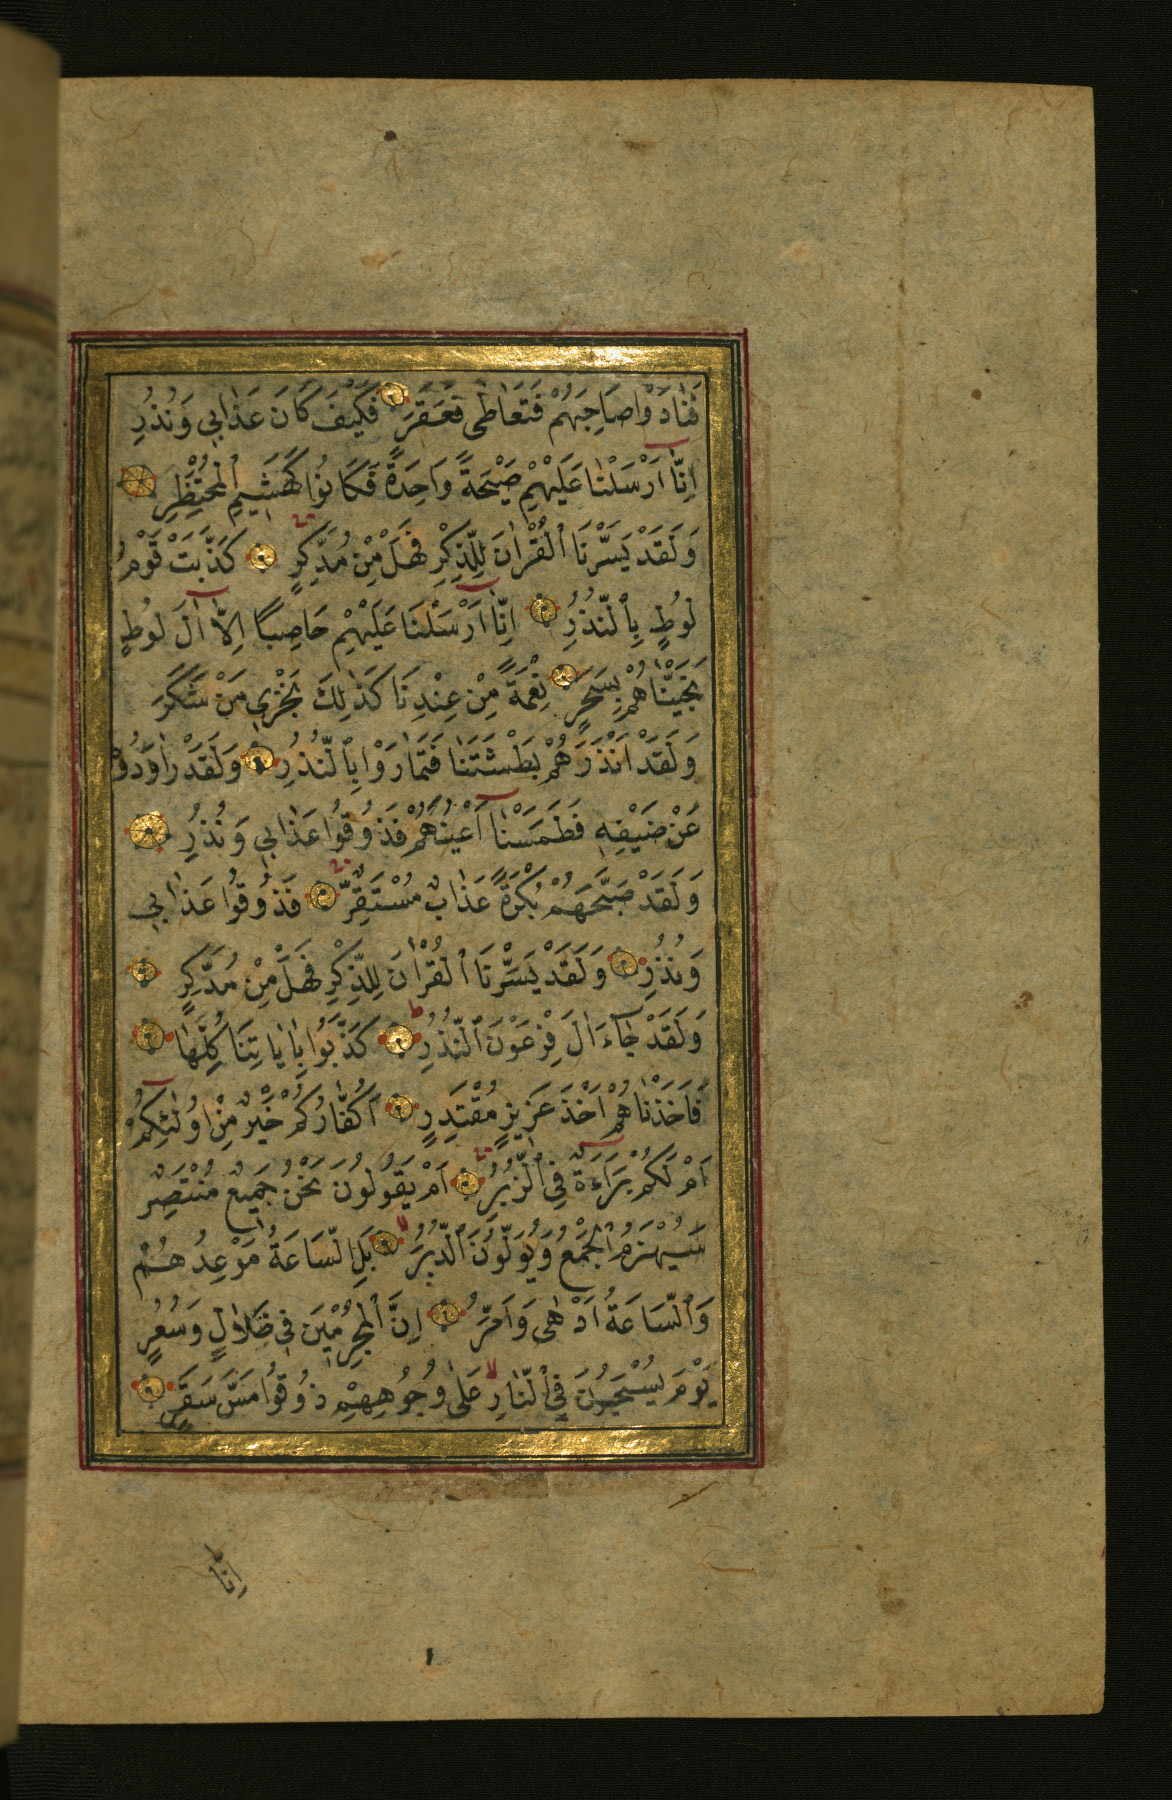 فَنَادَوْا صَاحِبَهُمْ فَتَعَاطٰى فَعَقَرَ فَكَيْفَ كَانَ عَذَابِي وَنُذُرِ
اِنَّآ اَرْسَلْنَا عَلَيْهِمْ صَيْحَةً وَاحِدَةً فَكَانُوا كَهَشِيمِ الْمُحْتَظِرِ
وَلَقَدْ يَسَّرْنَا الْقُرْاٰنَ لِلذِّكْرِ فَهَلْ مِنْ مُدَّكِرٍ كَذَّبَتْ قَوْمُ
لُوطٍ بِالنُّذُرِ اِنَّآ اَرْسَلْنَا عَلَيْهِمْ حَاصِبًا اِلَّآ اٰلَ لُوطٍ
نَجَّيْنَاهُمْ بِسَحَرٍ نِعْمَةً مِنْ عِنْدِنَا كَذٰلِكَ نَجْزِى مَنْ شَكَرَ
وَلَقَدْ اَنْذَرَهُمْ بَطْشَتَنَا فَتَمَارَوْا بِالنُّذُرِ وَلَقَدْ رَاوَدُوهُ
عَنْ ضَيْفِهِ فَطَمَسْنَآ اَعْيُنَهُمْ فَذُوقُوا عَذَابِي وَنُذُرِ
وَلَقَدْ صَبَّحَهُمْ بُكْرَةً عَذَابٌ مُسْتَقِرٌّ فَذُوقُوا عَذَابِي
وَنُذُرِ وَلَقَدْ يَسَّرْنَا الْقُرْاٰنَ لِلذِّكْرِ فَهَلْ مِنْ مُدَّكِرٍ
وَلَقَدْ جَآءَ اٰلَ فِرْعَوْنَ النُّذُرُ كَذَّبُوا بِاٰيَاتِنَا كُلِّهَا
فَاَخَذْنَاهُمْ اَخْذَ عَزِيزٍ مُقْتَدِرٍ اَكُفَّارُكُمْ خَيْرٌ مِنْ اُولٰٓئِكُمْ
اَمْ لَكُمْ بَرَآءَةٌ فِي الزُّبُرِ اَمْ يَقُولُونَ نَحْنُ جَمِيعٌ مُنْتَصِرٌ
سَيُهْزَمُ الْجَمْعُ وَيُوَلُّونَ الدُّبُرَ بَلِ السَّاعَةُ مَوْعِدُهُمْ
وَالسَّاعَةُ اَدْهٰى وَاَمَرُّ اِنَّ الْمُجْرِمِينَ فِي ضَلَالٍ وَسُعُرٍ
يَوْمَ يُسْحَبُونَ فِي النَّارِ عَلٰى وُجُوهِهِمْ ذُوقُوا مَسَّ سَقَرَ
اِنَّا